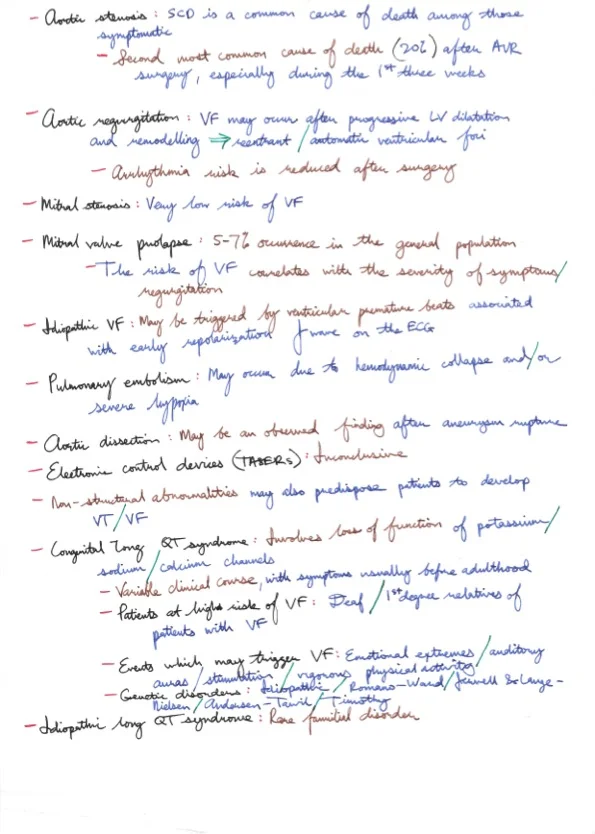 - Aortic stenosis : SCD is a common cause of death among those
symptomatic
- Second most common cause of death (20%) after AVR
surgery, especially during the 1st three weeks
- Aortic regurgitation : VF may occur after progressive LV dilatation
and remodelling ⇒ reentrant / automatic ventricular foci
- Arrhythmia risk is reduced after surgery
- Mitral stenosis : Very low risk of VF
- Mitral valve prolapse : 5-7% occurrence in the general population
- The risk of VF correlates with the severity of symptoms /
regurgitation
- Idiopathic VF : May be triggered by ventricular premature beats associated
with early repolarization J wave on the ECG
- Pulmonary embolism : May occur due to hemodynamic collapse and/or
severe hypoxia
- Aortic dissection : May be an observed finding after aneurysm rupture
- Electronic control devices (TASERs) : Inconclusive
- Non-structural abnormalities may also predispose patients to develop
VT / VF
- Congenital long QT syndrome : Involves loss of function of potassium /
sodium / calcium channels
- Variable clinical course, with symptoms usually before adulthood
- Patients at high risk of VF : Deaf / 1st degree relatives of
patients with VF
- Events which may trigger VF : Emotional extremes / auditory
auras / stimulation / vigorous physical activity
- Genetic disorders : Idiopathic / Romano-Ward / Jervell & Lange-
Nielsen / Andersen-Tawil / Timothy
- Idiopathic long QT syndrome : Rare familial disorder